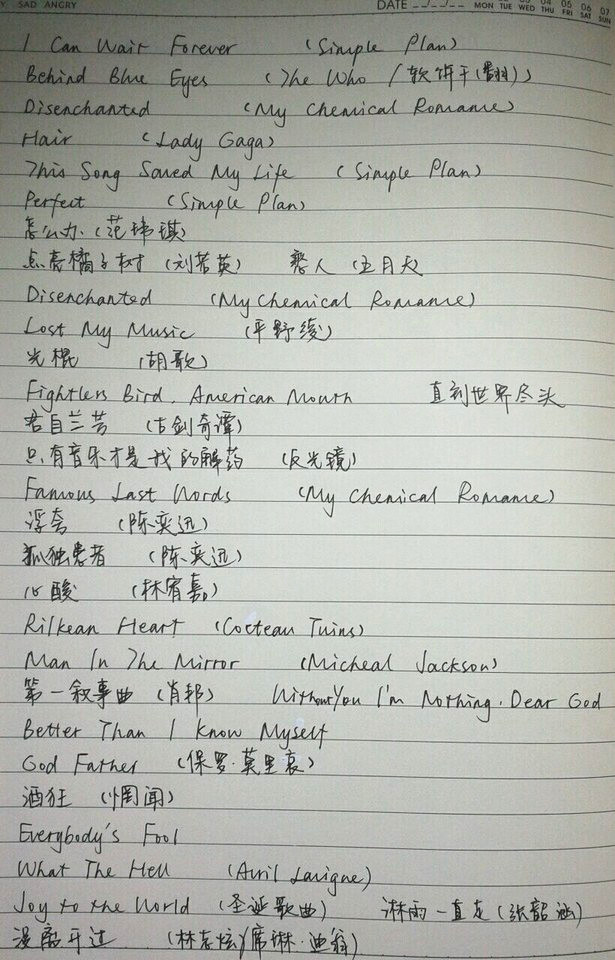 SAD ANGRY DATE __/__/__ MON TUE WED THU FRI SAT SUN
I Can Wait Forever (Simple Plan)
Behind Blue Eyes (The Who / 软饼干(翻))
Disenchanted (My Chemical Romance)
Hair (Lady Gaga)
This Song Saved My Life (Simple Plan)
Perfect (Simple Plan)
怎么办 (范玮琪)
点亮橘子树 (刘若英) 憨人 (五月天)
Disenchanted (My Chemical Romance)
Lost My Music (平野绫)
光棍 (胡歌)
Fightless Bird, American Mouth 直到世界尽头
君自兰芳 (古剑奇谭)
只有音乐才是我的解药 (反光镜)
Famous Last Words (My Chemical Romance)
浮夸 (陈奕迅)
孤独患者 (陈奕迅)
心酸 (林宥嘉)
Rilkean Heart (Cocteau Twins)
Man In The Mirror (Micheal Jackson)
第一叙事曲 (肖邦) Without You I'm Nothing. Dear God
Better Than I Know Myself
God Father (保罗·莫里哀)
酒狂 (惘闻)
Everybody's Fool
What The Hell (Avril Lavigne)
Joy to the World (圣诞歌曲) 淋雨一直走 (张韶涵)
没离开过 (林志炫)(席琳·迪翁)